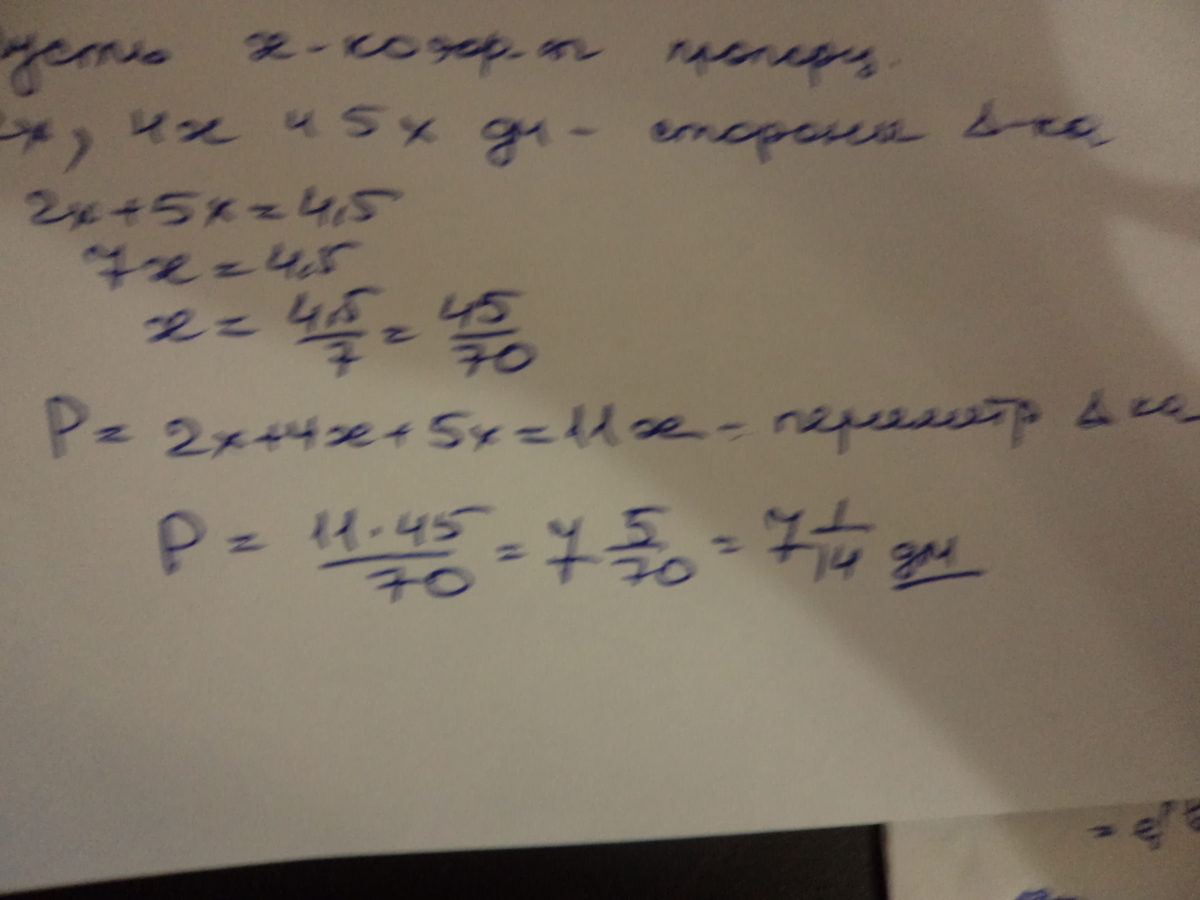 усть x - коэф-т пропорц.
2x, 4x и 5x дм - стороны Δ-ка
2x+5x=4,5
7x=4,5
x = 4,5/7 = 45/70
P= 2x+4x+5x=11x - периметр Δ-ка
P = 11·45/70 = 7 5/70 = 7 1/14 дм